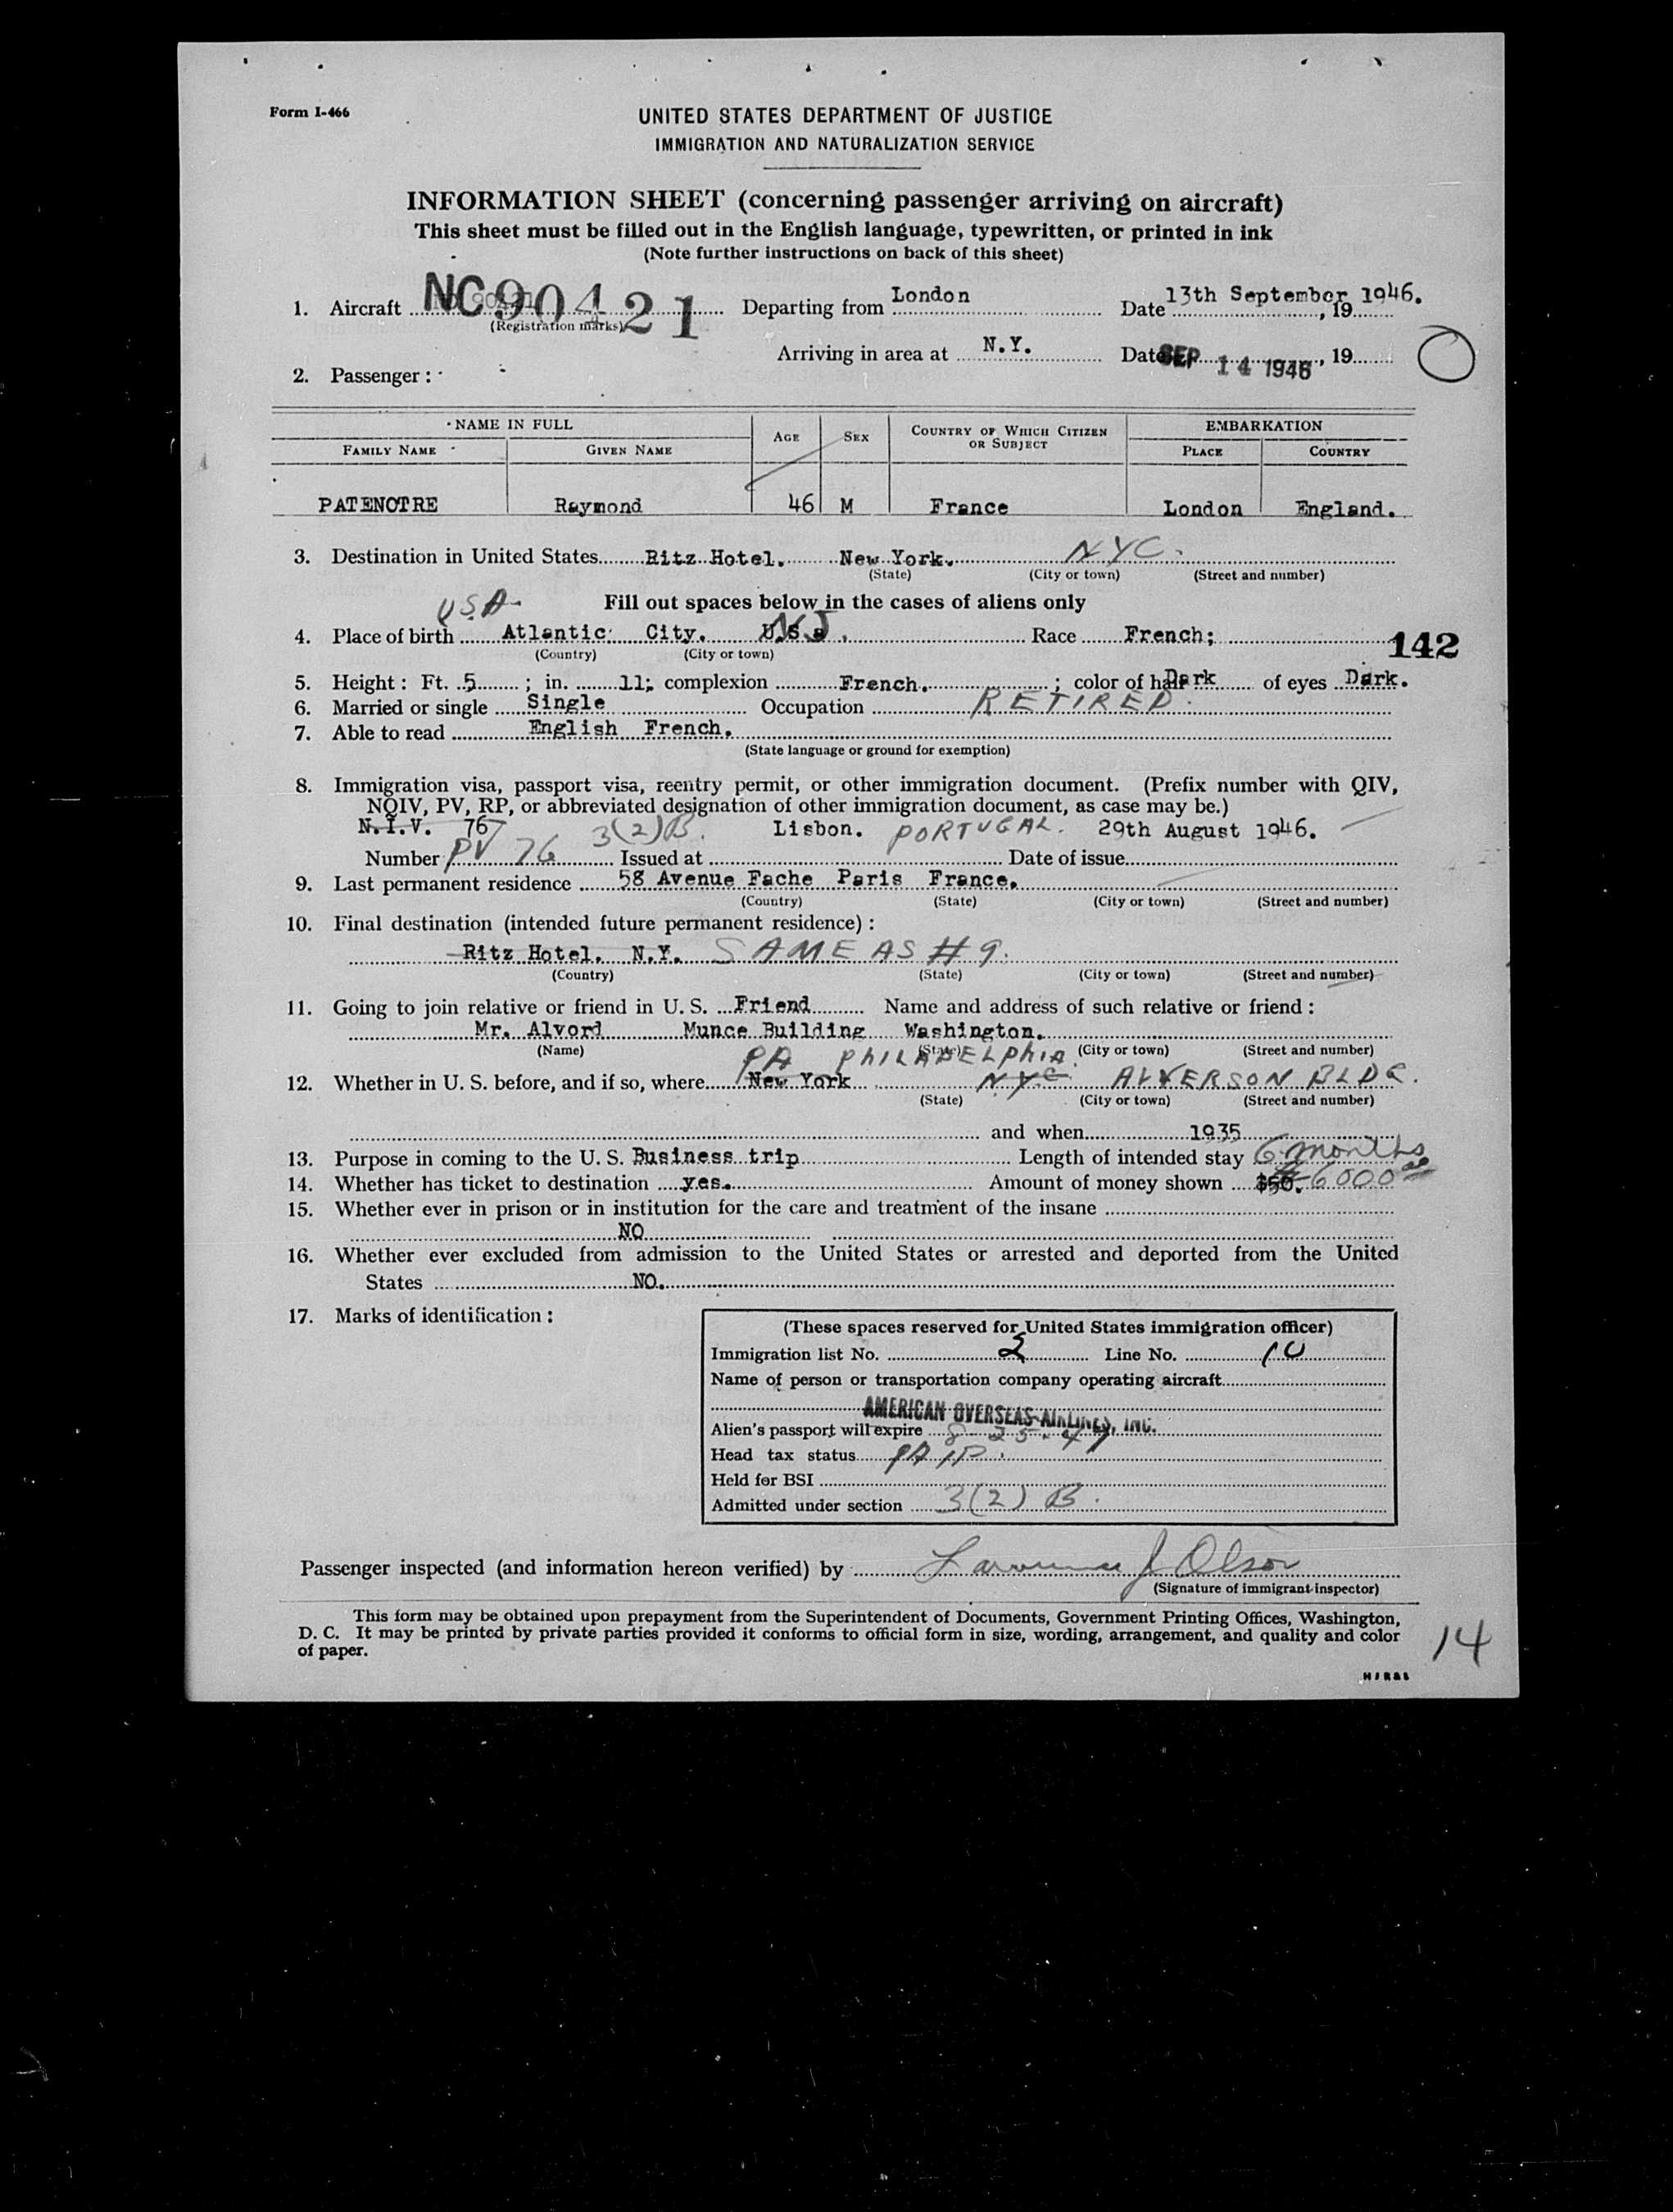 Form I-466
UNITED STATES DEPARTMENT OF JUSTICE
IMMIGRATION AND NATURALIZATION SERVICE
INFORMATION SHEET (concerning passenger arriving on aircraft)
This sheet must be filled out in the English language, typewritten, or printed in ink
(Note further instructions on back of this sheet)
1. Aircraft NC90421 Departing from London Date 13th September 1946. , 19
(Registration marks)
Arriving in area at N.Y. Date SEP 14 1946 , 19
2. Passenger:
NAME IN FULL AGE SEX COUNTRY OF WHICH CITIZEN OR SUBJECT EMBARKATION
FAMILY NAME GIVEN NAME PLACE COUNTRY
PATENOTRE Raymond 46 M France London England.
3. Destination in United States Ritz Hotel. New York. NYC.
(State) (City or town) (Street and number)
USA Fill out spaces below in the cases of aliens only
4. Place of birth Atlantic City. U.S.a. NJ Race French; 142
(Country) (City or town)
5. Height: Ft. 5 ; in. 11; complexion French. ; color of hair Dark of eyes Dark.
6. Married or single Single Occupation RETIRED.
7. Able to read English French.
(State language or ground for exemption)
8. Immigration visa, passport visa, reentry permit, or other immigration document. (Prefix number with QIV,
NQIV, PV, RP, or abbreviated designation of other immigration document, as case may be.)
N.I.V. 76 3(2)B. Lisbon. PORTUGAL. 29th August 1946.
Number PV 76 Issued at Date of issue
9. Last permanent residence 58 Avenue Fache Paris France.
(Country) (State) (City or town) (Street and number)
10. Final destination (intended future permanent residence):
Ritz Hotel. N.Y. SAME AS #9.
(Country) (State) (City or town) (Street and number)
11. Going to join relative or friend in U. S. Friend Name and address of such relative or friend:
Mr. Alvord Munce Building Washington.
(Name) (State) (City or town) (Street and number)
PA PHILADELPHIA.
12. Whether in U. S. before, and if so, where New York NYC BLDG.
(State) (City or town) (Street and number)
and when 1935
13. Purpose in coming to the U. S. Business trip Length of intended stay 6 months
14. Whether has ticket to destination yes. Amount of money shown $50. 6000 00
15. Whether ever in prison or in institution for the care and treatment of the insane
NO
16. Whether ever excluded from admission to the United States or arrested and deported from the United
States NO.
17. Marks of identification:
(These spaces reserved for United States immigration officer)
Immigration list No. 2 Line No. 10
Name of person or transportation company operating aircraft
AMERICAN OVERSEAS AIRLINES, INC.
Alien's passport will expire 8-25-47
Head tax status PAID.
Held for BSI
Admitted under section 3(2) B.
Passenger inspected (and information hereon verified) by Lawrence J Olson
(Signature of immigrant inspector)
This form may be obtained upon prepayment from the Superintendent of Documents, Government Printing Offices, Washington,
D. C. It may be printed by private parties provided it conforms to official form in size, wording, arrangement, and quality and color
of paper.
14